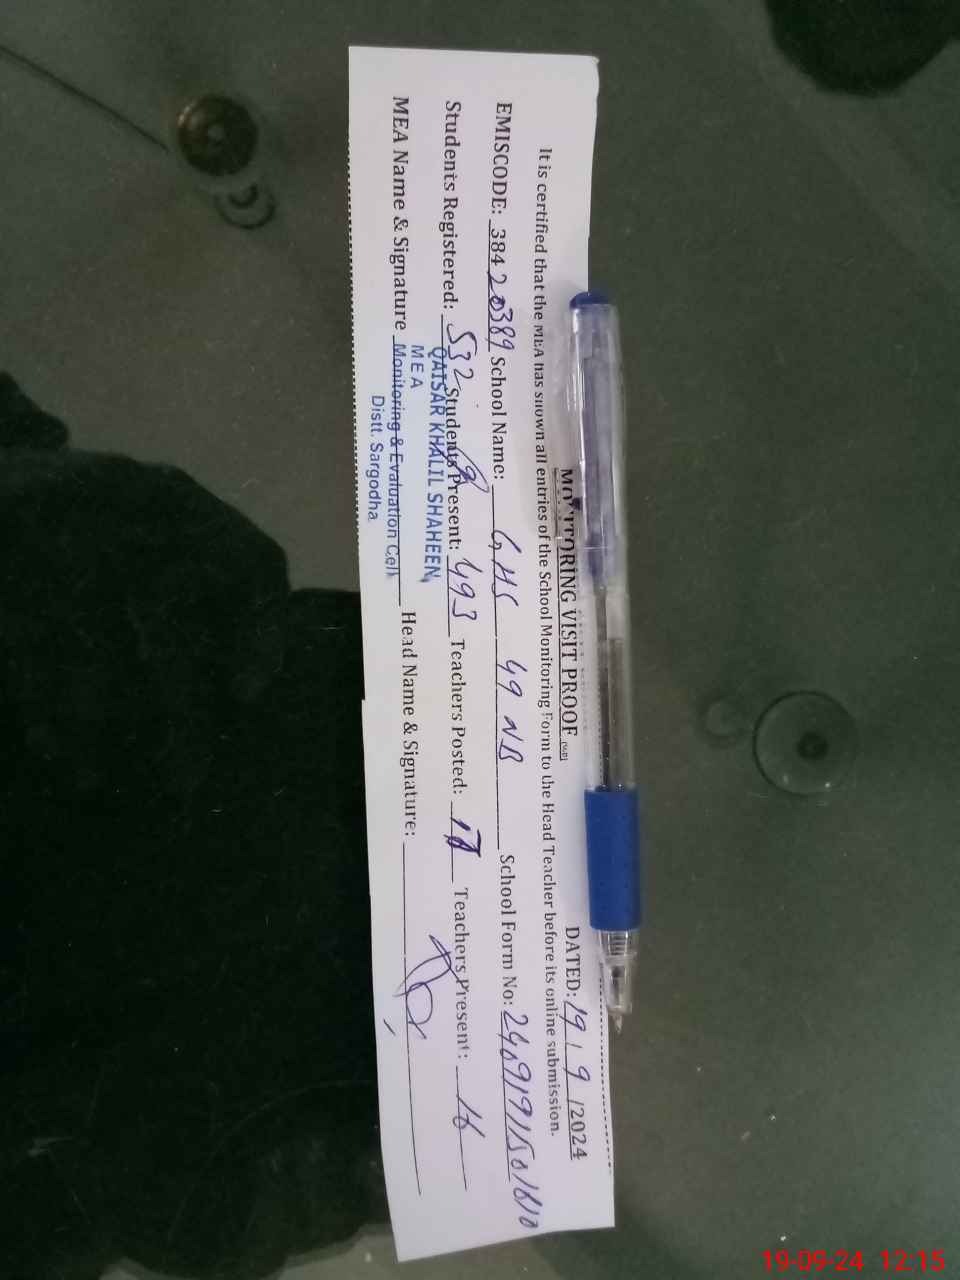 MONITORING VISIT PROOF
DATED: 19 / 9 /2024
It is certified that the MEA has shown all entries of the School Monitoring Form to the Head Teacher before its online submission.
EMISCODE: 38420389 School Name: GHS 49 NB School Form No:
Students Registered: 532 Students Present: 493 Teachers Posted: 17 Teachers Present: 16
MEA Name & Signature Head Name & Signature:
QAISAR KHALIL SHAHEEN,
MEA
Monitoring & Evaluation Cell
Distt. Sargodha
19-09-24 12:15